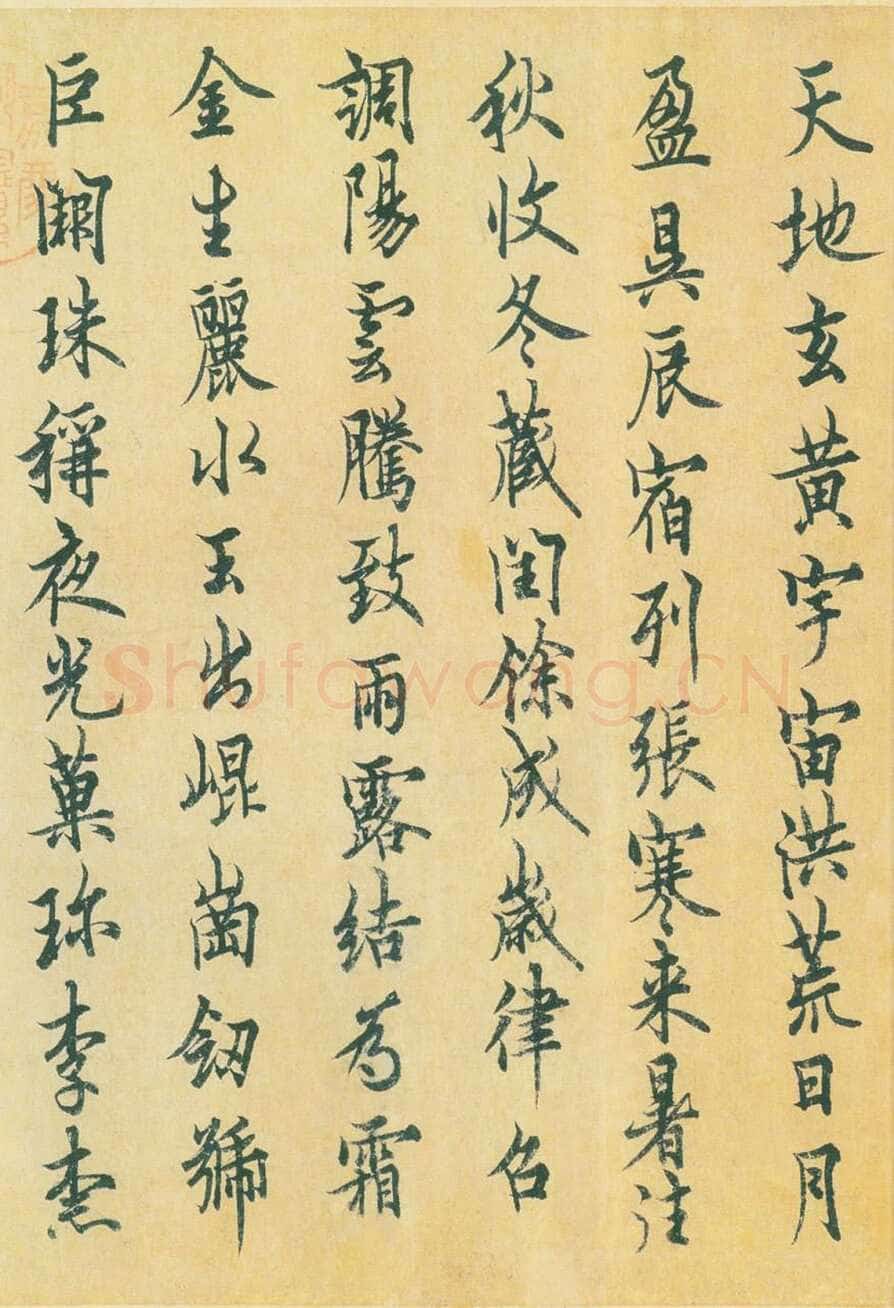 天地玄黃宇宙洪荒日月
盈昃辰宿列張寒来暑往
秋收冬藏閏餘成歲律召
調陽雲騰致雨露結為霜
金生麗水玉出崐崗釼號
巨闕珠稱夜光菓珎李柰
Shufawang.CN